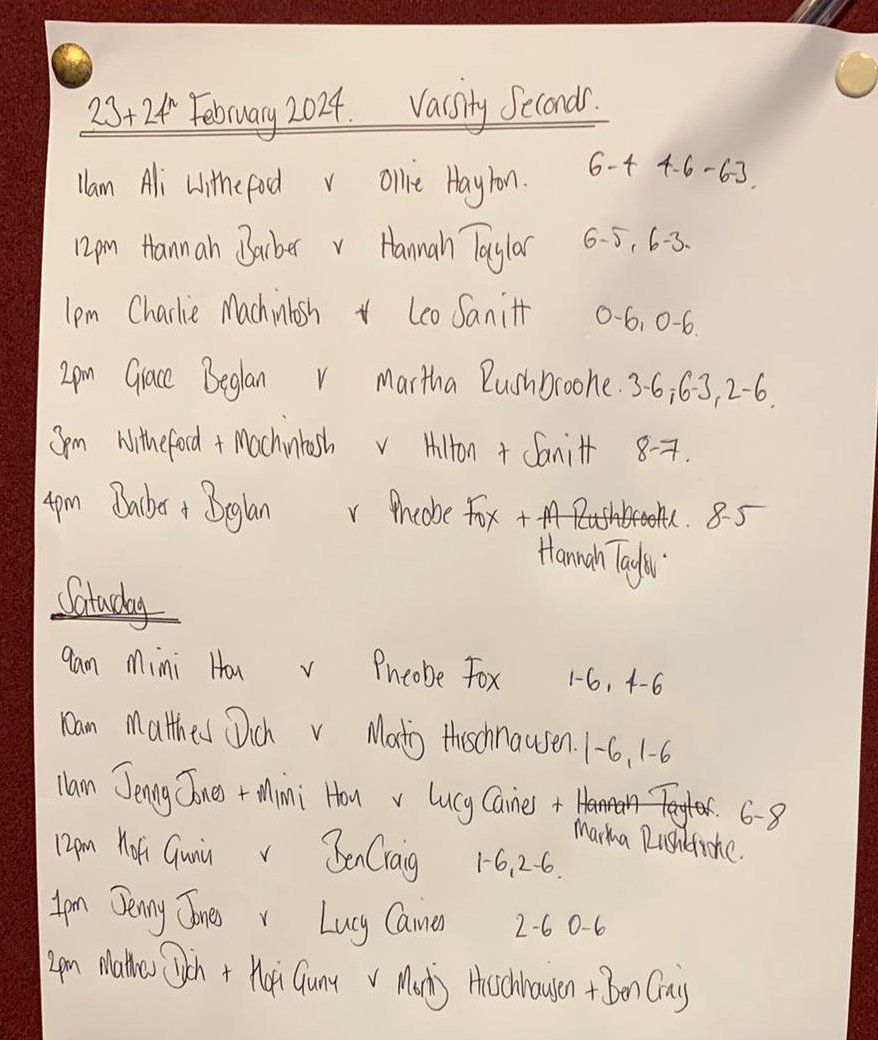 23+24th February 2024. Varsity Seconds.
11am Ali Witheford v Ollie Hayton. 6-4 4-6-63.
12pm Hannah Barber v Hannah Taylor 6-5, 6-3.
1pm Charlie Machintosh v Leo Sanitt 0-6, 0-6.
2pm Grace Beglan v Martha Rushbrooke. 3-6, 6-3, 2-6.
3pm Witheford + Machintosh v Hilton + Sanitt 8-7.
4pm Barber + Beglan v Pheobe Fox + M Rushbrooke. 8-5
Hannah Taylor.
Saturday
9am Mimi Hou v Pheobe Fox 1-6, 4-6
10am Matthew Dich v Moritz Hirschhausen. 1-6, 1-6
11am Jenny Jones + Mimi Hou v Lucy Caines + Hannah Taylor. 6-8
Martha Rushbrooke.
12pm Hofi v Ben Craig 1-6, 2-6.
1pm Jenny Jones v Lucy Caines 2-6 0-6
2pm Matthew Dich + Hofi v Moritz Hirschhausen + Ben Craig